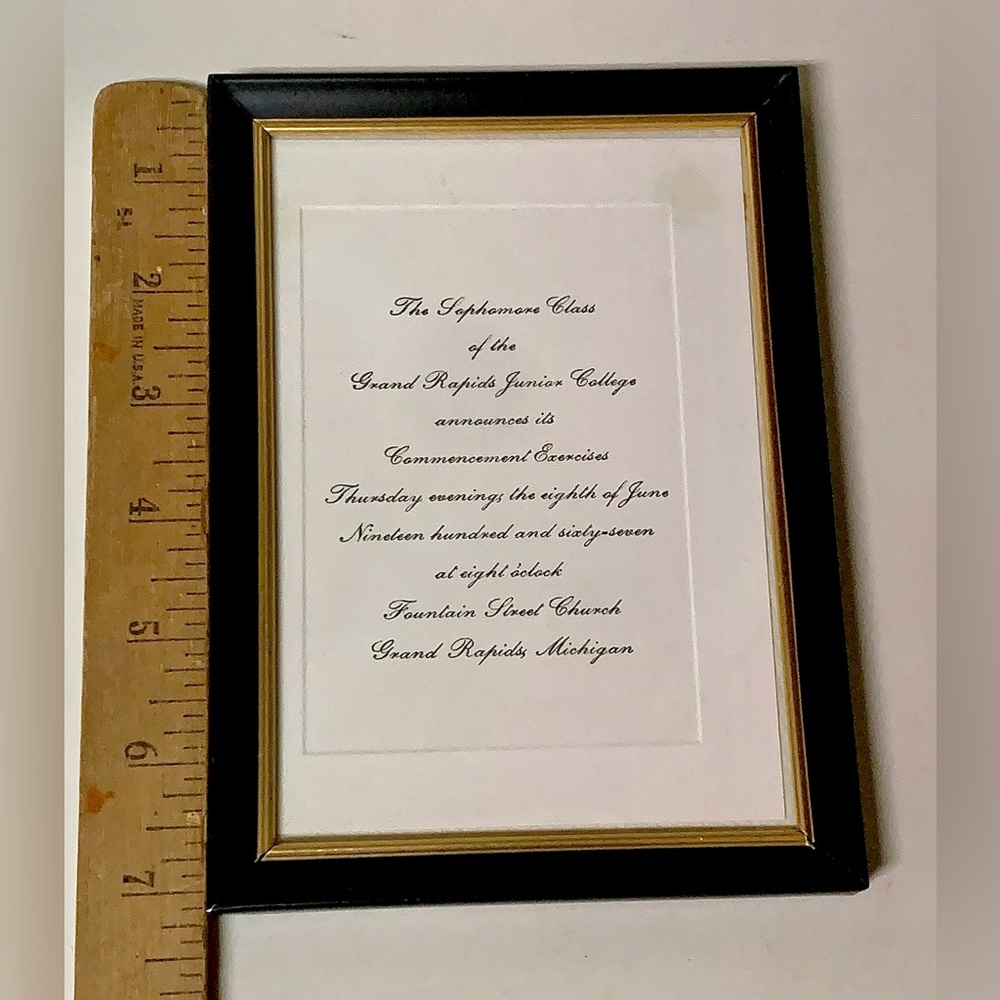 The Sophomore Class
of the
Grand Rapids Junior College
announces its
Commencement Exercises
Thursday evening, the eighth of June
Nineteen hundred and sixty-seven
at eight o'clock
Fountain Street Church
Grand Rapids, Michigan
1
2
MADE IN U.S.A.
3
4
5
6
7